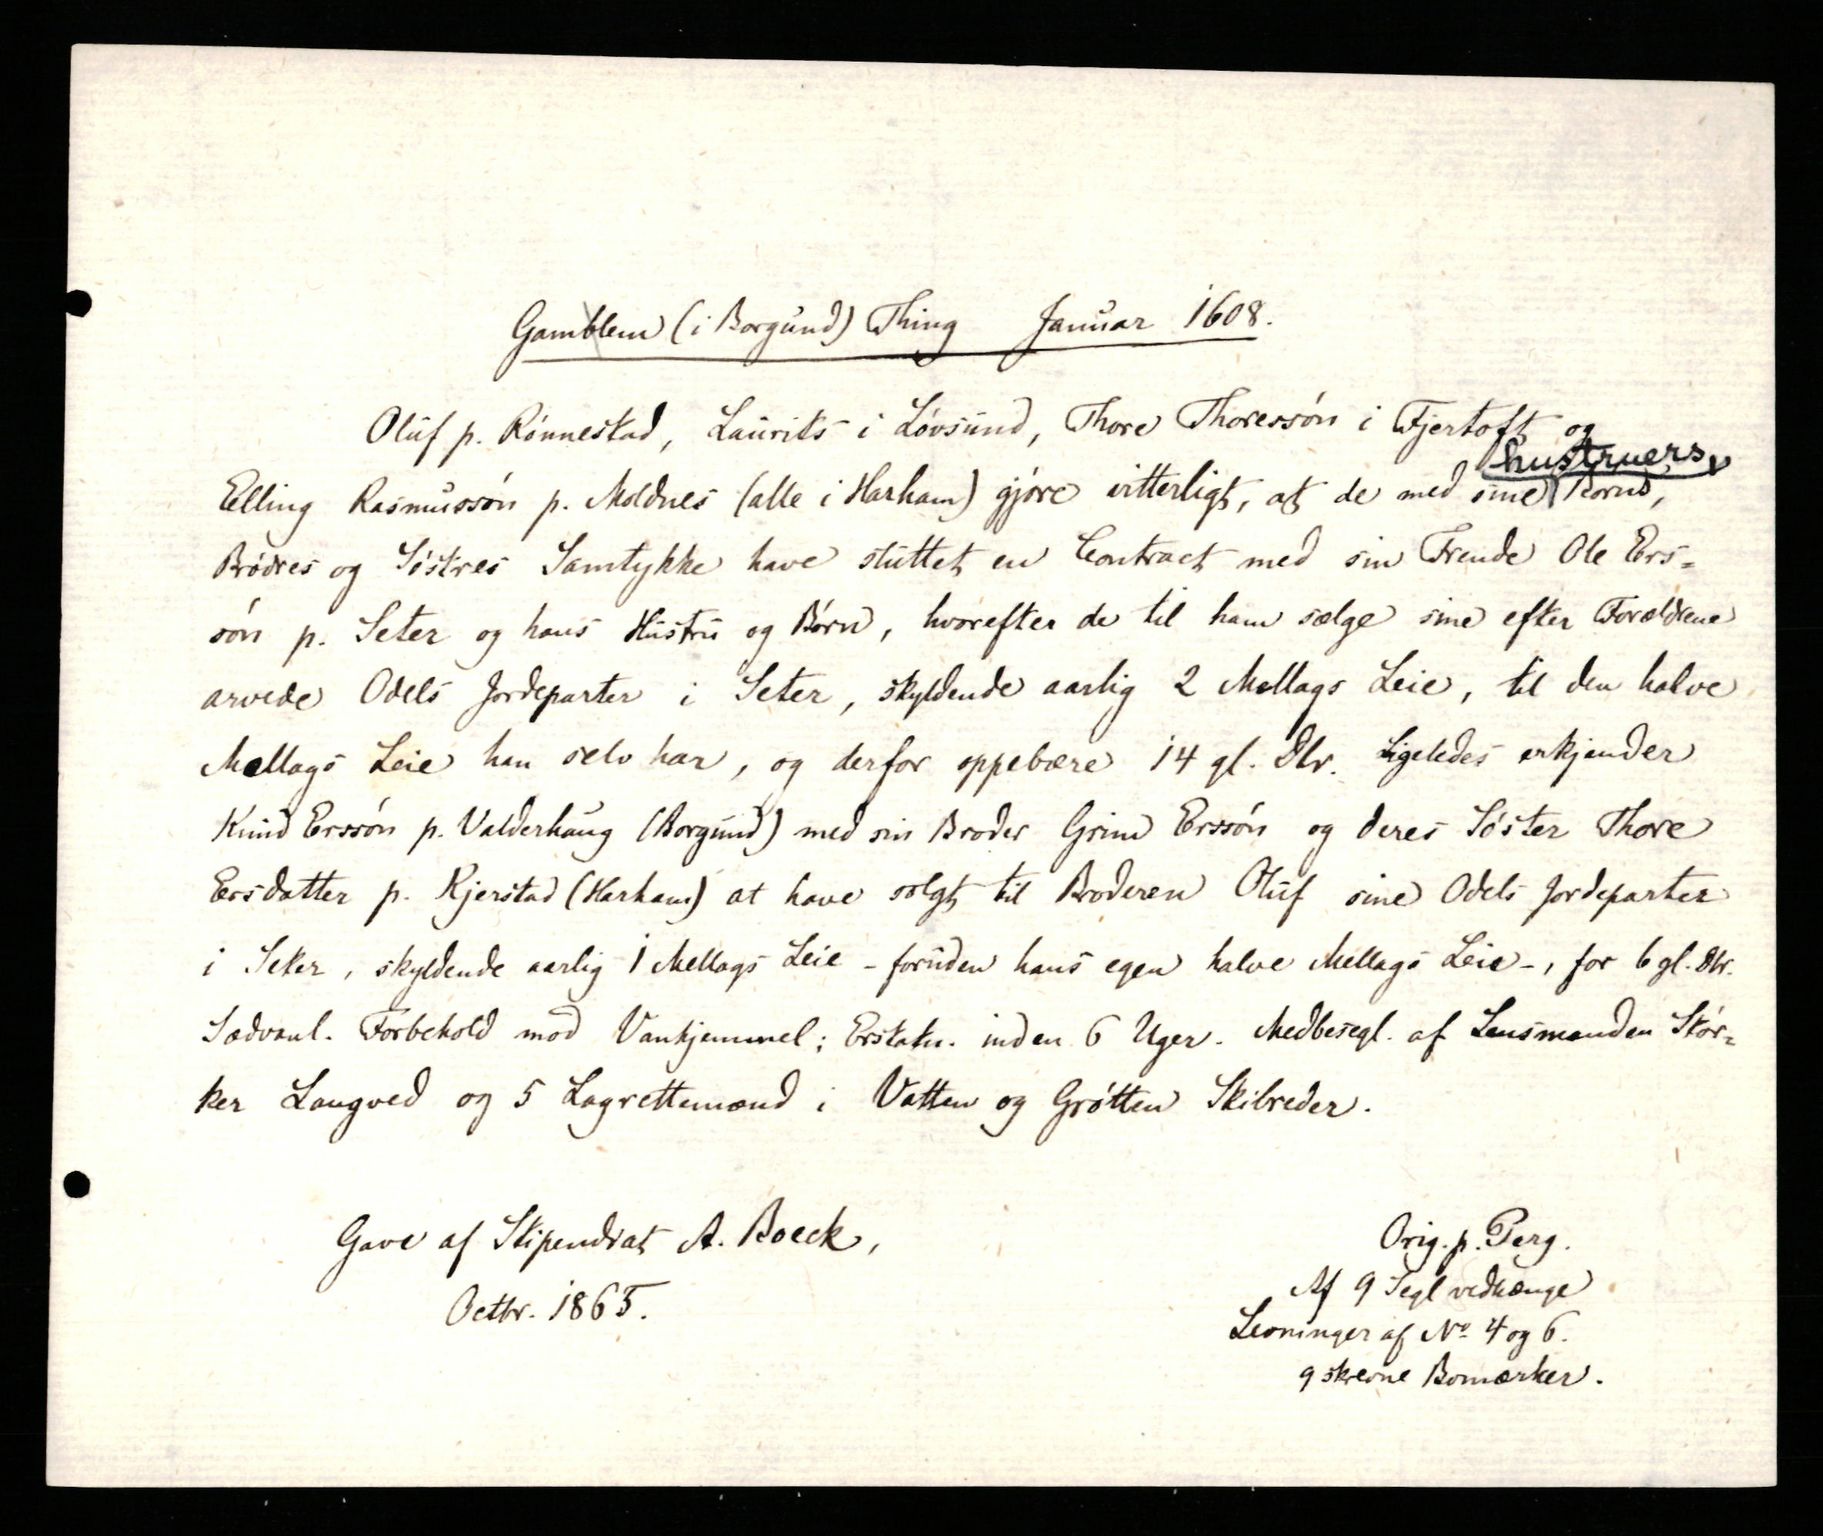 Gamblem (i Borgund) Thing Januar 1608.
Oluf p. Rónnestad, Laurits i Lóvsund, Thore Thoressón i Fjertoft og
hustruers,
Elling Rasmussón p. Moldnes (alle i Harham) gjóre vitterligt, at de med sine Börns,
Brødres og Sóstres Samtykke have sluttet en Contract med sin Frende Ole Ers-
són p. Seter og hans Hustru og Børn, hvorefter de til ham sælge sine efter Forældrene
arvede Odels Jordeparter i Seter, skyldende aarlig 2 Mellags Leie, til den halve
Mellags Leie han selv har, og derfor oppebære 14 gl. Dlr. Ligeledes erkjender
Knud Erssón p. Valderhaug (Borgund) med sin Broder Grim Erssón og deres Søster Thore
Ersdatter p. Kjerstad (Harham) at have solgt til Broderen Oluf sine Odels Jordeparter
i Seter, skyldende aarlig 1 Mellags Leie - foruden hans egen halve Mellags Leie -, for 6 gl. Dlr.
Sædvanl. Forbehold mod Vanhjemmel; Erstatn. inden 6 Uger. Medbesegl. af Lensmanden Stór-
ker Langved og 5 Lagrettemænd i Vatten og Grótten Skibreder.
Gave af Stipendiat A. Boeck,
Octbr. 1865.
Orig. p. Perg.
Af 9 Segl vedhænge
Levninger af No. 4 og 6.
9 skrevne Bomærker.